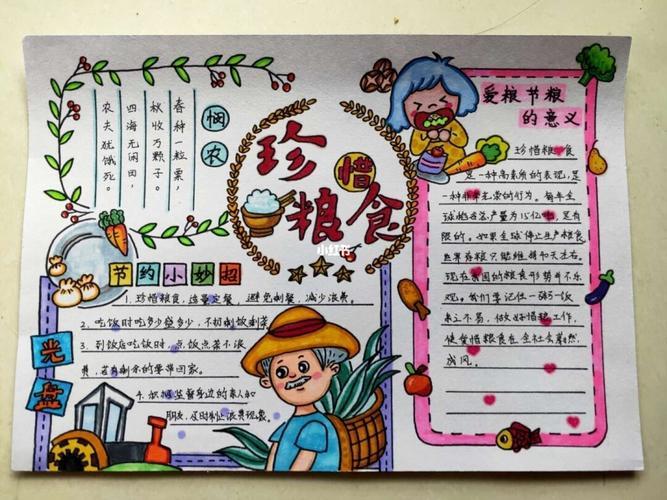 悯农
春种一粒粟,
秋收万颗子。
四海无闲田,
农夫犹饿死。
珍惜
粮食
小红书
节约小妙招
1.珍惜粮食,适量定餐,避免剩餐,减少浪费。
2、吃饭时吃多少盛多少,不扔剩饭剩菜
3、到饭店吃饭时,点饭点菜不浪
费,若有剩余的要带回家。
4、积极监督身边的亲人和
朋友,及时制止浪费现象。
光盘
爱粮节粮
的意义
珍惜粮食
是一种高素质的表现,是
一种非常光荣的行为。每年全
球粮食总产量为15亿吨,是有
限的。如果全球停止生产粮食
世界存粮只能维持40天左右。
现在我国的粮食形势并不乐
观,我们要记住一饭
来之不易,做好惜粮工作,
使爱惜粮食在全社会蔚然
成风。